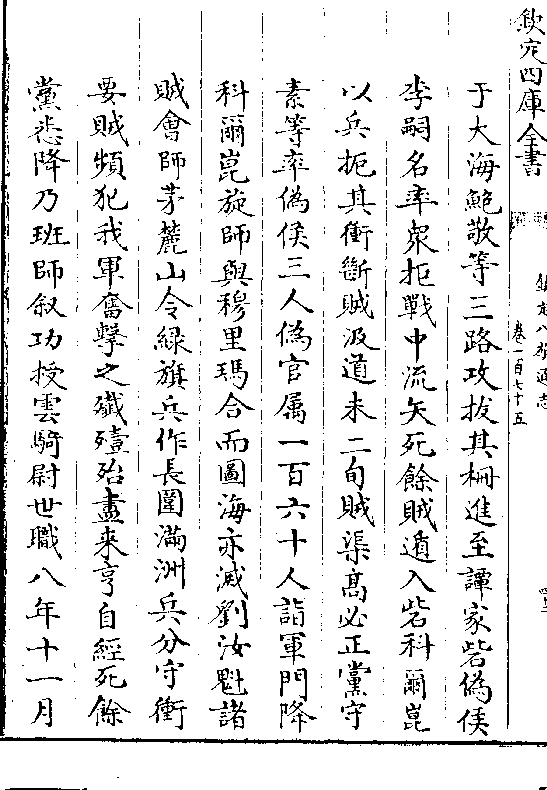 欽定四庫全書
欽定八旗通志
卷一百七十五
于大海鮑敬等三路攻拔其柵進至譚家砦偽侯
李嗣名率衆拒戰中流矢死餘賊遁入砦科爾崑
以兵扼其衝斷賊汲道未二旬賊渠高必正黨守
素等率偽侯三人偽官属一百六十人詣軍門降
科爾崑旋師與穆里瑪合而圖海亦滅劉汝魁諸
賊會師茅麓山令綠旗兵作長圍滿洲兵分守衝
要賊頻犯我軍奮擊之殲殪殆盡來亨自經死餘
黨悉降乃班師叙功授雲騎尉世職八年十一月